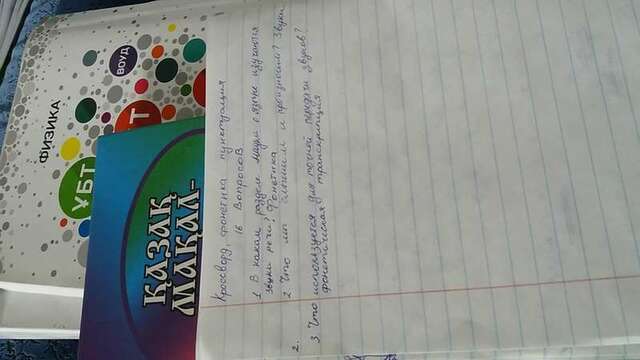 Кроссворд, фонетика пунктуация
16 Вопросов
1 В каком разделе науки о языке изучаются
звуки речи? Фонетика
2 Что мы слышим и произносим? Звуки
2.
3. Что используется для точной передачи звуков?
фонетическая транскрипция
ФИЗИКА
ҰБТ
ВОУД
Т
ҚАЗАҚ
МАҚАЛ-